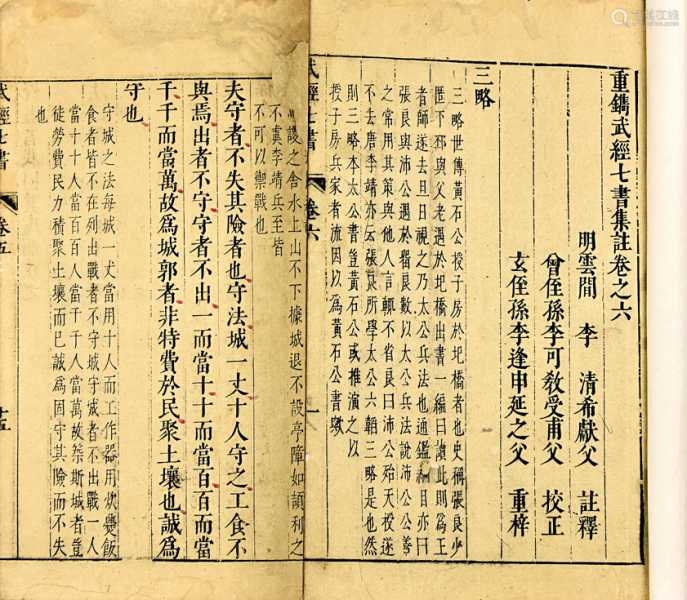 重鐫武經七書集註卷之六
明雲間 李 清希獻父 註釋
曾侄孫李可教受甫父 校正
玄侄孫李逢申延之父 重梓
三略
三略世傳黃石公授子房於圯橋者也史稱張良少
匿下邳與父老遇於圯橋出書一編曰讀此則為王
者師遂去旦日視之乃太公兵法也通鑑綱目亦曰
張良與沛公遇於留良數以太公兵法說沛公公善
之常用其策與他人言輒不省良曰沛公殆天授遂
不去唐李靖亦云張良所學太公六韜三略是也然
則三略本太公書豈黃石公或推演之以
授子房兵家者流因以為黃石公書歟
武經七書
卷六
一
之舍水上山不下據城退不設亭障如頡利之
不虞李靖兵至皆
不可以禦戰也
夫守者不失其險者也守法城一丈十人守之工食不
與焉出者不守守者不出一而當十十而當百百而當
千千而當萬故為城郭者非特費於民聚土壤也誠為
守也
守城之法每城一丈當用十人而工作器用炊爨飯
食者皆不在列出戰者不守城守城者不出戰一人
當十十人當百百人當千千人當萬故築斯城者豈
徒勞費民力積聚土壤而已誠為固守其險而不失
也
武經七書
卷五